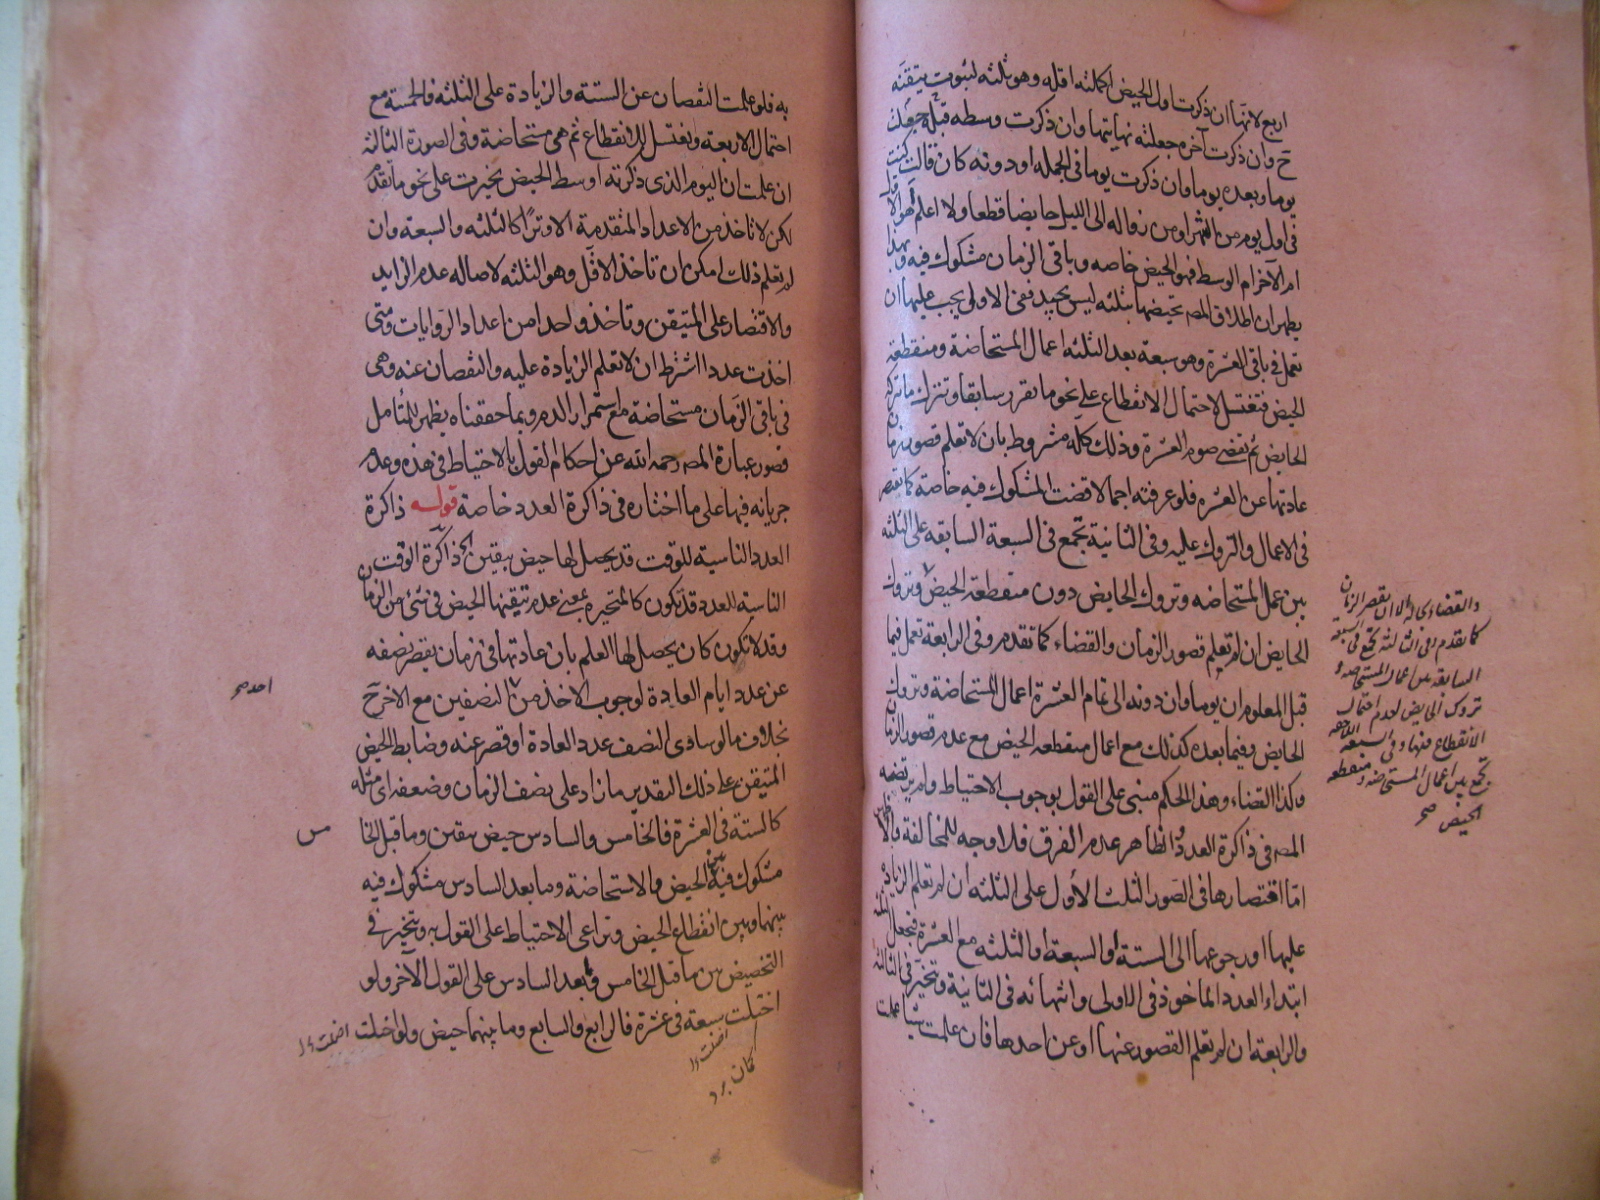 اربع لانها ان ذكرت اول الحيض اكملته اقله وهو ثلثه لثبوت تيقنه
ح وان ذكرت آخره جعلته نهايتها وان ذكرت وسطه قبله حفته
يوما وبعده يوما وان ذكرت يوما في الجمله او دونه كان قالت كنت
في اول يوم من الشهر او من زواله الى الليل حايضا قطعا ولا اعلم اهو الاول
ام الآخر ام الوسط فهو الحيض خاصه وباقى الزمان مشكوك فيه وبهذا
يظهر ان اطلاق المصـ تحيضها بثلثه ليس بجيد ففى الاولى يجب عليها ان
تعمل في باقى العشرة وهو سبعة بعد الثلثه اعمال المستحاضة ومنقطعة
الحيض فتغتسل لاحتمال الانقطاع على نحو ما تقرر سابقا وتترك ما تتركه
الحايض ثم تقضى صوم العشرة وذلك كله مشروط بان لا تعلم قصور زمان
عادتها عن العشره فلو عرفته اجمالا قضت المشكوك فيه خاصة كما تقتصر
فى الاعمال والتروك عليه وفى الثانية تجمع فى السبعة السابقه على الثلثه
بين عمل المستحاضه وتروك الحايض دون منقطعة الحيض وتروك
الحايض ان لم تعلم قصور الزمان والقضاء كما تقدم وفى الرابعة تعمل فيما
قبل المعلوم ان يوما وان دونه الى تمام العشرة اعمال المستحاضة وتروك
الحايض وفيما بعده كذلك مع اعمال منقطعه الحيض مع عدم قصور الزمان
وكذا القضاء وهذا الحكم مبنى على القول بوجوب الاحتياط ولم يرتضه
المصـ فى ذاكرة العدد والظاهر عدم الفرق فلا وجه للمخالفة
امّا اقتصارها فى الصور الثلث الأول على الثلثه ان لم تعلم الزيادة
عليها او رجوعها الى الستة او السبعة او الثلثه مع العشرة فتجعل
ابتداء العدد الماخوذ فى الاولى وانتهائه فى الثانية وتتخير فى الثالثة
والرابعة ان لم تعلم القصور عنها او عن احدها فان علمت شيئا عملت
والقضاء الا ان يقصر الزمان
كما تقدم وفى الثالثة تجمع فى السبعة
السابقة بين اعمال المستحاضة و
تروك الحايض لعدم احتمال
الانقطاع فيها وفى السبعة اللاحقه
تجمع بين اعمال المستحاضه ومنقطعه
الحيض صح
به فلو علمت النقصان عن الستة والزيادة على الثلثه فالخمسة مع
احتمال الاربعة وتغتسل للانقطاع ثم هى مستحاضة وفى الصورة الثالثة
ان علمت ان اليوم الذى ذكرته اوسط الحيض تخيرت على نحو ما تقدم
لكن لا تاخذ من الاعداد المتقدمة الا وترًا كالثلثه والسبعة وان
لم تعلم ذلك امكن ان تأخذ الاقل وهو الثلثه لاصاله عدم الزايد
والاقتصار على المتيقن وتاخذ واحدا من اعداد الروايات ومتى
اخذت عددا اشترط ان لا تعلم الزيادة عليه والنقصان عنه وهى
فى باقى الزمان مستحاضة مع استمرار الدم وبما حققناه يظهر للمتامل
قصور عبارة المصـ رحمه الله عن احكام القول بالاحتياط فى هذه وعدم
جريانه فيها على ما اختاره فى ذاكرة العدد خاصة قوله ذاكرة
العدد الناسية للوقت قد يحصل لها حيض بيقين الخ ذاكرة الوقت
الناسية للعدد قد تكون كالمتحيره بمعنى عدم تيقنها الحيض فى شئ من الزمان
وقد لا تكون كان يحصل لها العلم بان عادتها فى زمان يقصر نصفه
عن عدد ايام العادة لوجوب الاخذ من النصفين مع الآخر ح
احد صح
بخلاف ما لو ساوى النصف عدد العادة او قصر عنه وضابط الحيض
المتيقن على ذلك التقدير ما زاد على نصف الزمان وضعفه اى مثله
كالستة فى العشرة فالخامس والسادس حيض بيقين وما قبل الخا
مس
مشكوك فيه بين الحيض والاستحاضة وما بعد السادس مشكوك فيه
بينهما وبين انقطاع الحيض وتراعى الاحتياط على القول به وتتخير فى
التخصيص بين ما قبل الخامس وبعد السادس على القول الآخر ولو
اختلت سبعة فى عشرة فالرابع والسابع وما بينهما حيض ولو اختلت